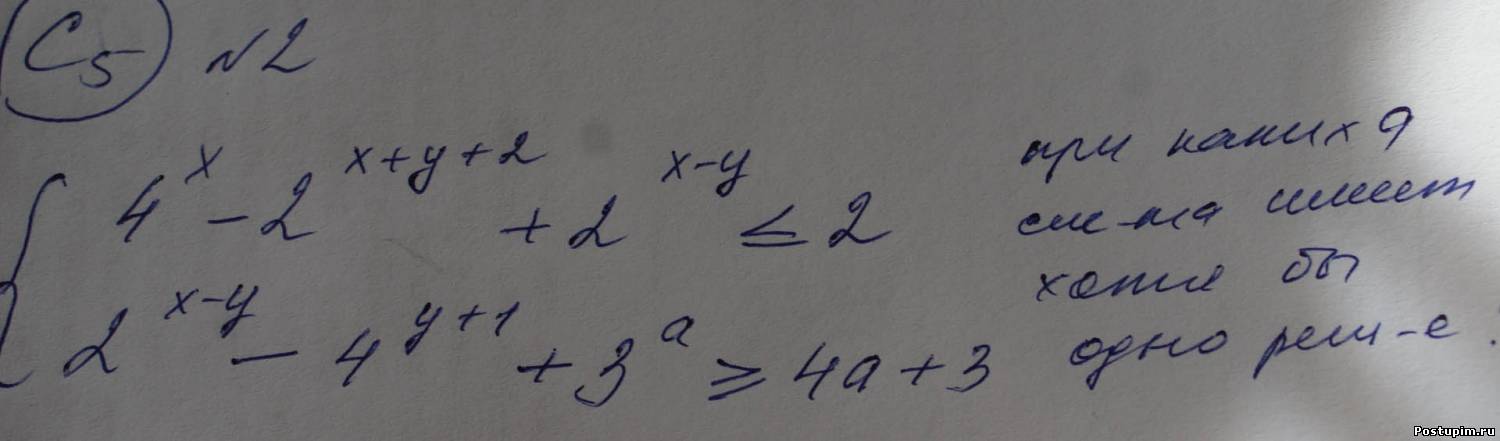 C5 N2
4^x - 2^{x+y+2} + 2^{x-y} ≤ 2
2^{x-y} - 4^{y+1} + 3^a ≥ 4a + 3
при каких a
сис-ма имеет
хотя бы
одно реш-е :
Postupim.ru